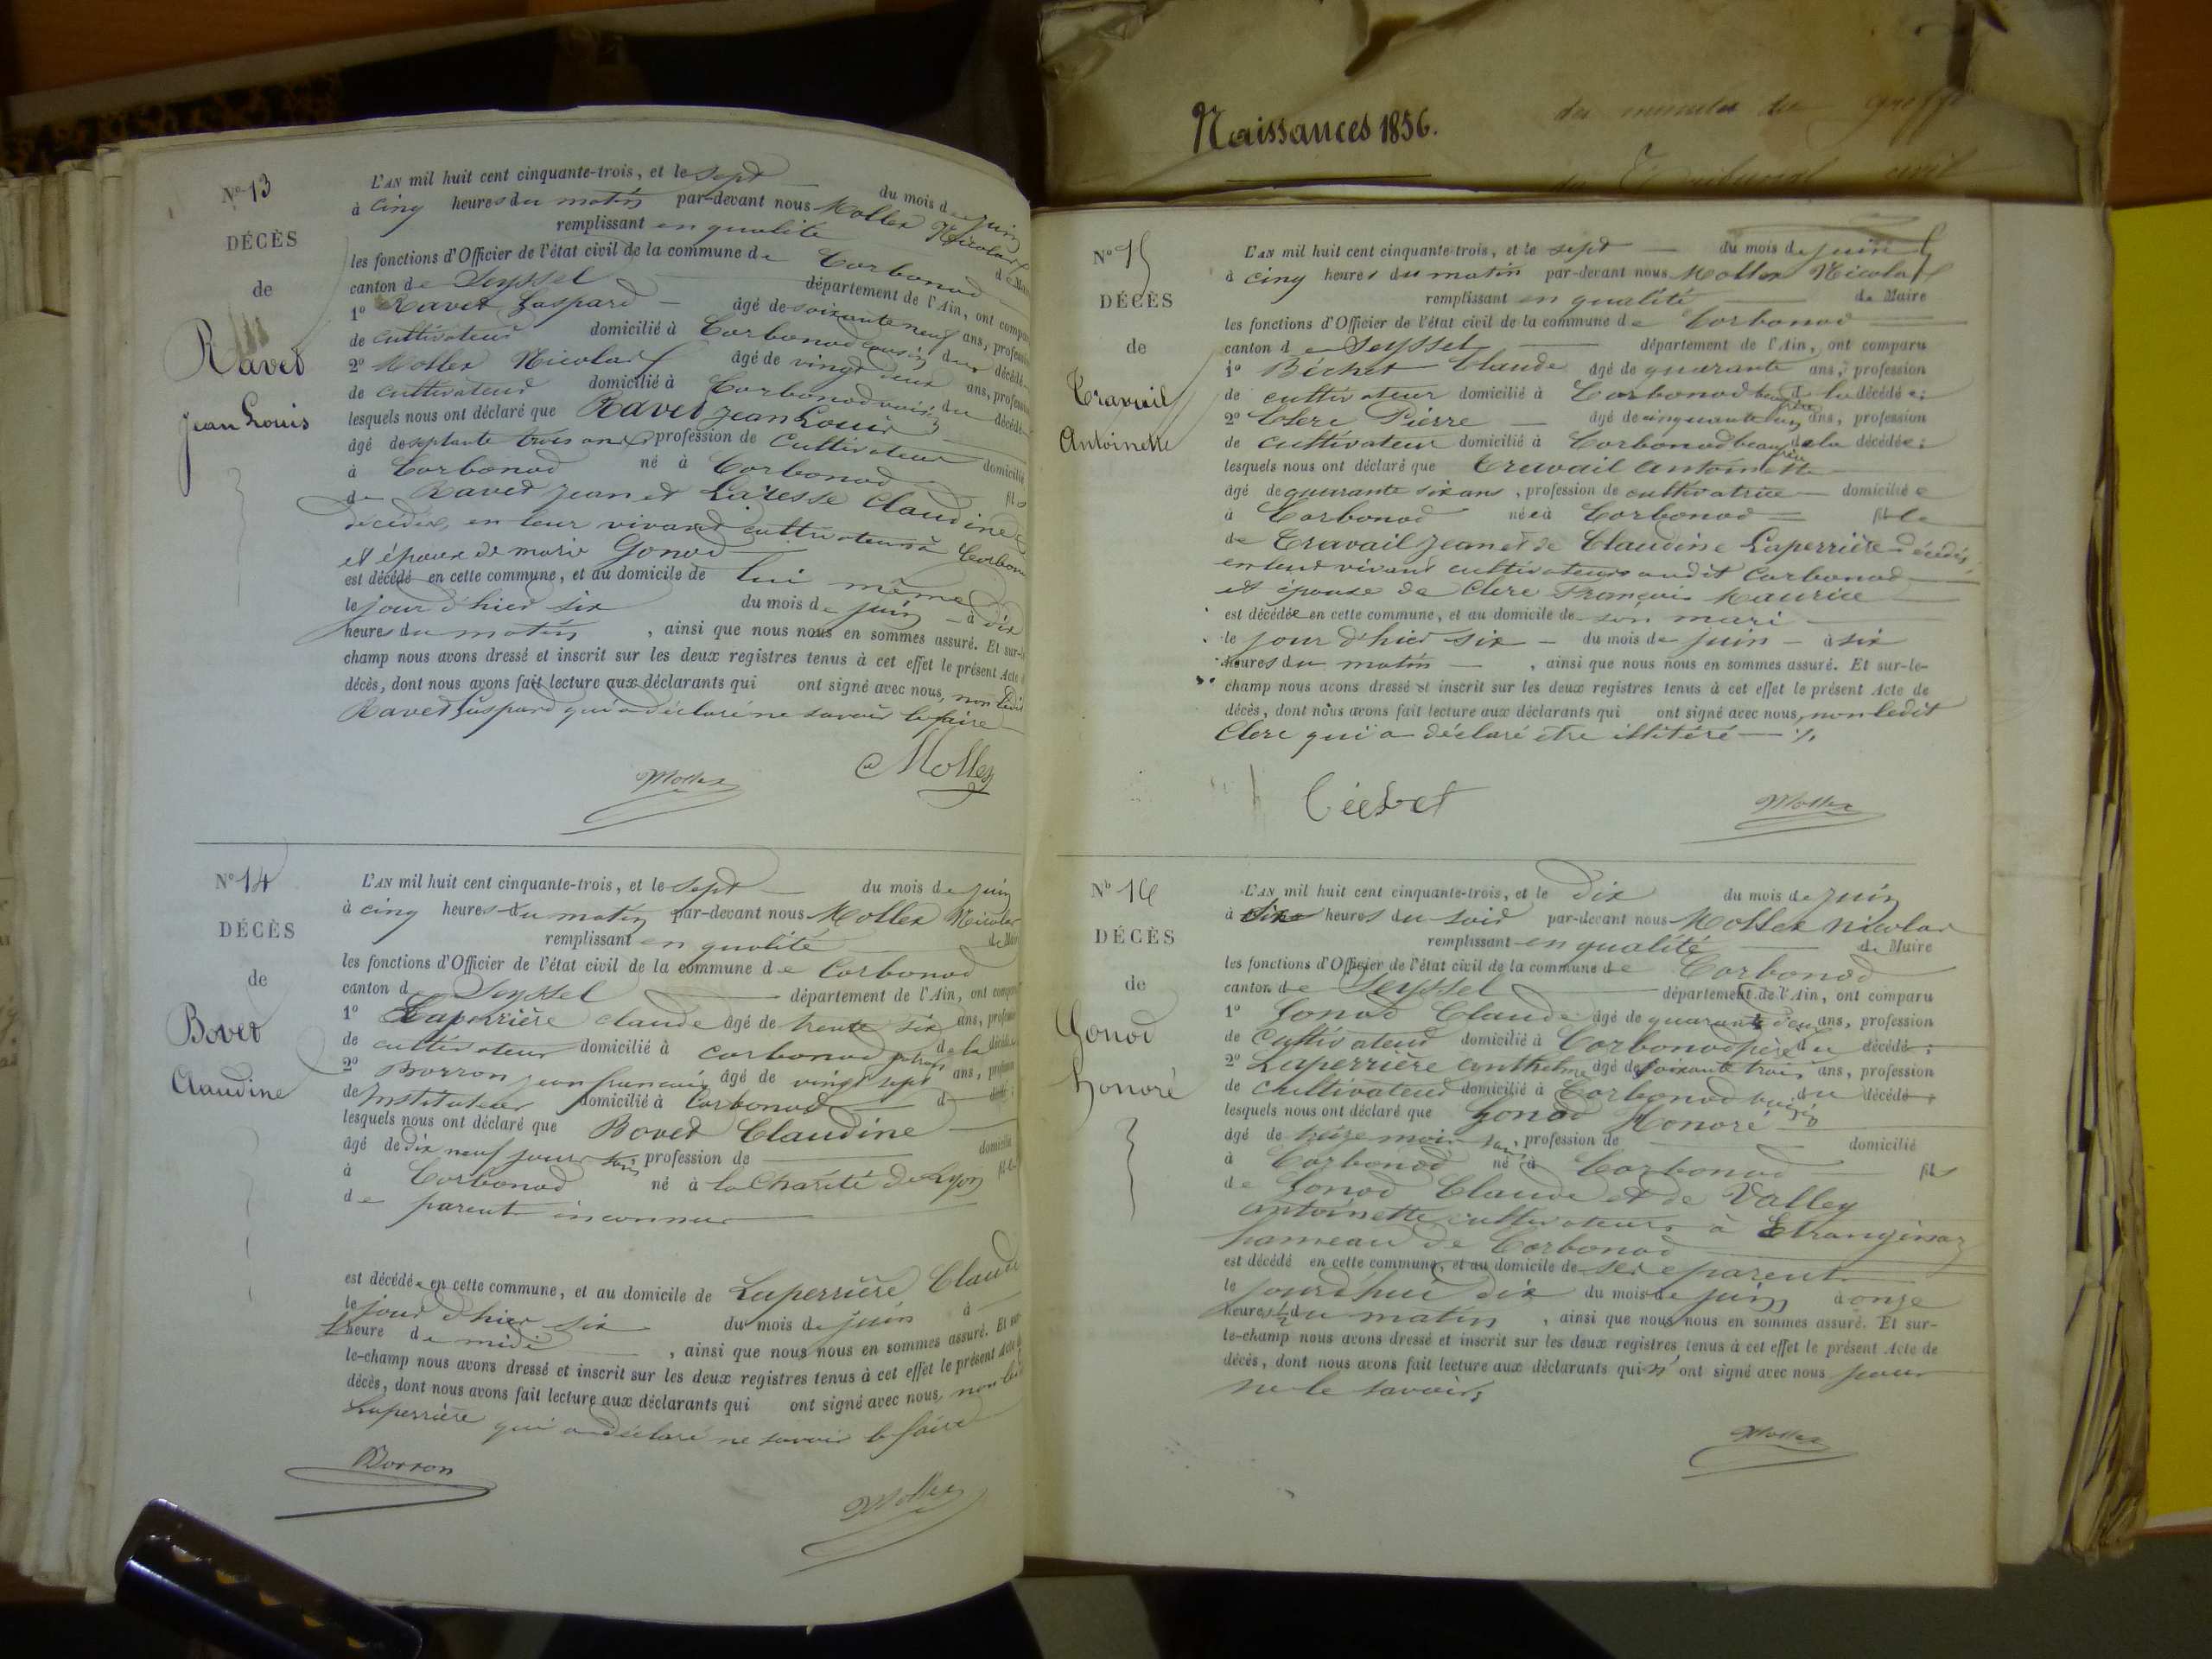 Naissances 1856.
des minutes du greffe
du Tribunal civil
N° 13
DÉCÈS
de
Ravet
Jean Louis
L'AN mil huit cent cinquante-trois, et le sept du mois de juin
à cinq heures du matin par-devant nous Mollex Nicolas
remplissant en qualité de Maire
les fonctions d'Officier de l'état civil de la commune de Corbonod
canton de Seyssel département de l'Ain, ont comparu
1° Ravet Gaspard âgé de soixante neuf ans, profession
de cultivateur domicilié à Corbonod cousin du décédé
2° Mollex Nicolas âgé de vingt deux ans, profession
de cultivateur domicilié à Corbonod voisin du décédé
lesquels nous ont déclaré que Ravet Jean Louis
âgé de septante trois ans profession de Cultivateur domicilié
à Corbonod né à Corbonod fils
de Ravet Jean et Claudine
décédés, en leur vivant cultivateurs à Corbonod
et époux de marie Gonod
est décédé en cette commune, et au domicile de lui même
le jour d'hier six du mois de juin à dix
heures du matin, ainsi que nous nous en sommes assuré. Et sur-le-
champ nous avons dressé et inscrit sur les deux registres tenus à cet effet le présent Acte de
décès, dont nous avons fait lecture aux déclarants qui ont signé avec nous, non ledit
Ravet Gaspard qui a déclaré ne savoir le faire
Mollex Mollex
N° 14
DÉCÈS
de
Bovet
Claudine
L'AN mil huit cent cinquante-trois, et le sept du mois de juin
à cinq heures du matin par-devant nous Mollex Nicolas
remplissant en qualité de Maire
les fonctions d'Officier de l'état civil de la commune de Corbonod
canton de Seyssel département de l'Ain, ont comparu
1° Laperrière claude âgé de trente six ans, profession
de cultivateur domicilié à corbonod de la décédée
2° Borron jean françois âgé de vingt sept ans, profession
de Instituteur domicilié à Corbonod d
lesquels nous ont déclaré que Bovet Claudine
âgé de dix neuf jours profession de domicilié
à Corbonod né à la Charité de Lyon fille
de parents inconnus
est décédée en cette commune, et au domicile de Laperrière Claude
le jour d'hier six du mois de juin à
heure de midi, ainsi que nous nous en sommes assuré. Et sur-
le-champ nous avons dressé et inscrit sur les deux registres tenus à cet effet le présent Acte de
décès, dont nous avons fait lecture aux déclarants qui ont signé avec nous, non ledit
Laperrière qui a déclaré ne savoir le faire
Borron
Mollex
N° 15
DÉCÈS
de
Travail
Antoinette
L'AN mil huit cent cinquante-trois, et le sept du mois de juin
à cinq heures du matin par-devant nous Mollex Nicolas
remplissant en qualité de Maire
les fonctions d'Officier de l'état civil de la commune de Corbonod
canton de Seyssel département de l'Ain, ont comparu
1° Béchet Claude âgé de quarante ans, profession
de cultivateur domicilié à Corbonod beau frère de la décédée;
2° Clerc Pierre âgé de cinquante cinq ans, profession
de cultivateur domicilié à Corbonod beau frère de la décédée;
lesquels nous ont déclaré que Travail Antoinette
âgé de quarante six ans, profession de cultivatrice domiciliée
à Corbonod née à Corbonod fille
de Travail jean et de Claudine Laperrière décédés,
en leur vivant cultivateurs audit Corbonod
et épouse de Clerc François Maurice
est décédée en cette commune, et au domicile de son mari
le jour d'hier six du mois de juin à six
heures du matin, ainsi que nous nous en sommes assuré. Et sur-le-
champ nous avons dressé et inscrit sur les deux registres tenus à cet effet le présent Acte de
décès, dont nous avons fait lecture aux déclarants qui ont signé avec nous, non ledit
Clerc qui a déclaré etre illitéré
Béchet
Mollex
N° 16
DÉCÈS
de
Gonod
honoré
L'AN mil huit cent cinquante-trois, et le dix du mois de juin
à six heures du soir par-devant nous Mollex Nicolas
remplissant en qualité de Maire
les fonctions d'Officier de l'état civil de la commune de Corbonod
canton de Seyssel département de l'Ain, ont comparu
1° Gonod Claude âgé de quarante deux ans, profession
de Cultivateur domicilié à Corbonod père du décédé;
2° Laperrière Anthelme âgé de soixante trois ans, profession
de cultivateur domicilié à Corbonod voisin du décédé;
lesquels nous ont déclaré que Gonod Honoré
âgé de treize mois, profession de domicilié
à Corbonod né à Corbonod fils
de Gonod Claude et de Valley
antoinette cultivateurs à Etranginaz
hameau de Corbonod
est décédé en cette commune, et au domicile de ses parents
le jourd'hui dix du mois de juin à onze
heures ½ du matin, ainsi que nous nous en sommes assuré. Et sur-
le-champ nous avons dressé et inscrit sur les deux registres tenus à cet effet le présent Acte de
décès, dont nous avons fait lecture aux déclarants qui n'ont signé avec nous pour
ne le savoir;
Mollex